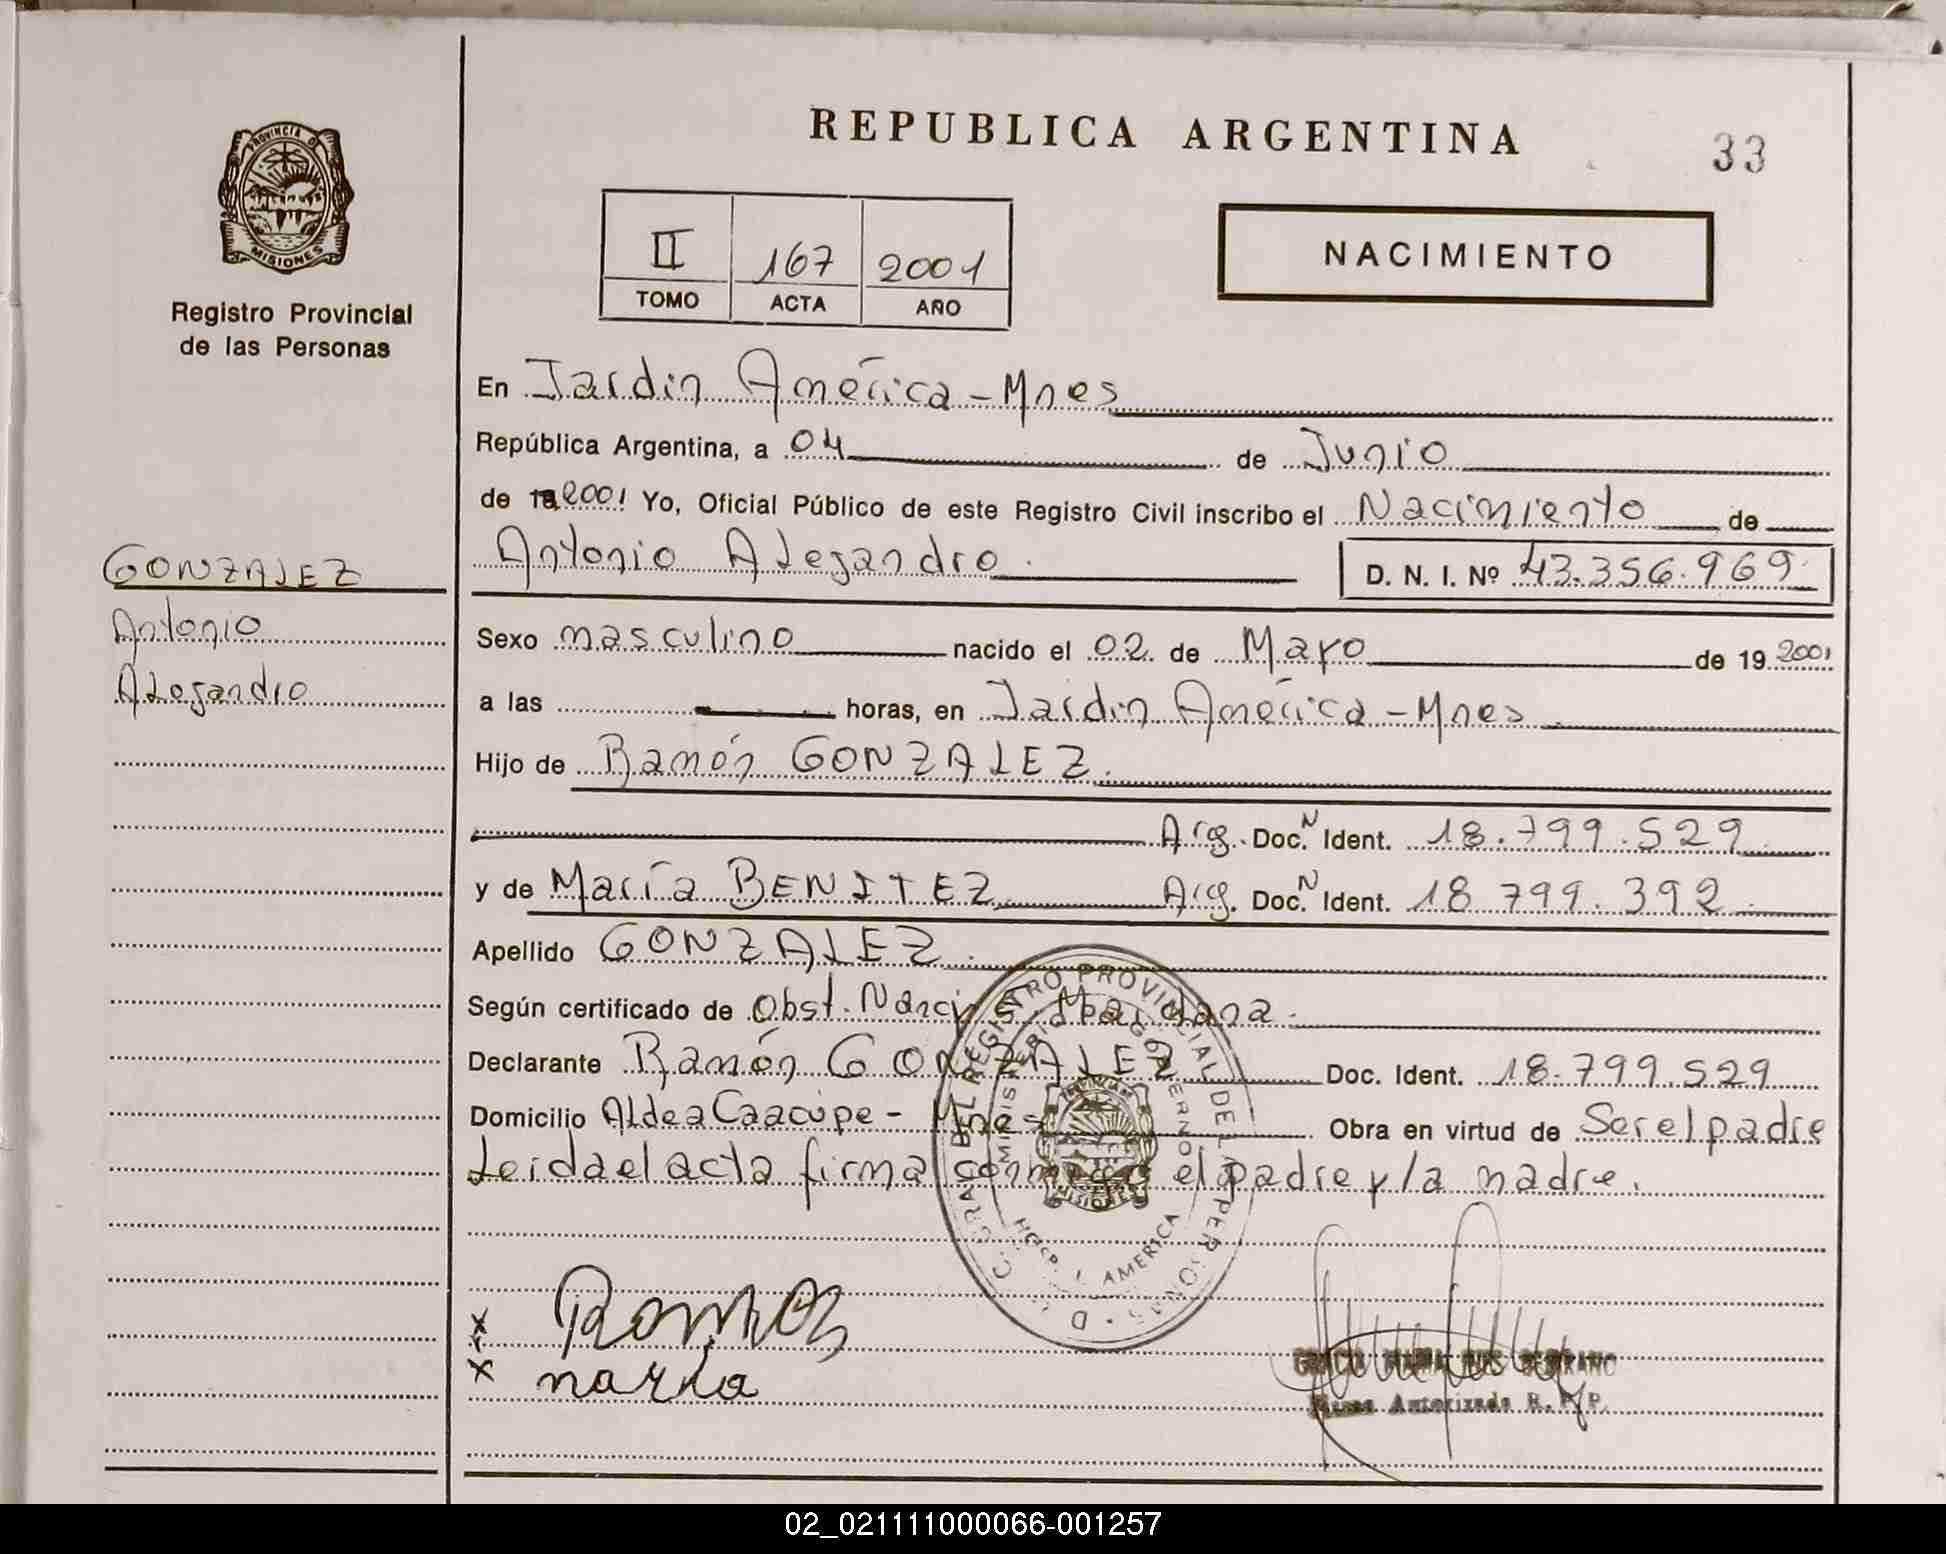 REPUBLICA ARGENTINA
33
PROVINCIA D
MISIONES
Registro Provincial
de las Personas
II 167 2001
TOMO ACTA AÑO
NACIMIENTO
En Jardin América - Mnes
República Argentina, a 04 de Junio
de 19 2001 Yo, Oficial Público de este Registro Civil inscribo el Nacimiento de
Antonio Alejandro D. N. I. Nº 43.356.969
GONZALEZ
Antonio
Alejandro
Sexo masculino nacido el 02 de Mayo de 19 2001
a las horas, en Jardin América - Mnes
Hijo de Ramón GONZALEZ.
Arg. Doc. N Ident. 18.799.529
y de María BENITEZ Arg. Doc. N Ident. 18 799.392
Apellido GONZALEZ.
Según certificado de Obst. Narcisa Maidana.
Declarante Ramón GONZALEZ Doc. Ident. 18.799.529
Domicilio Aldea Caacupe - Mnes Obra en virtud de Ser el padre
Leida el acta firma conmigo el padre y la madre.
REGISTRO PROVINCIAL DE LAS PERSONAS
MINISTERIO GOBIERNO
MISIONES
HOSP. J. AMERICA
x
x narla
Firma Autorizada R. P. P.
02_021111000066-001257